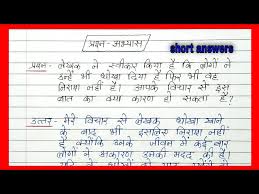 प्रश्न - अभ्यास
short answers
प्रश्न - लेखक ने स्वीकार किया है कि लोगों ने
उन्हें भी धोखा दिया है फिर भी वह
निराश नहीं है। आपके विचार से इस
बात का क्या कारण हो सकता है?
उत्तर - मेरे विचार से लेखक धोखा खाने
के बाद भी इसलिए निराश नहीं
है क्योंकि उनके जीवन में कई बार
लोगों ने अकारण उनकी मदद की है।